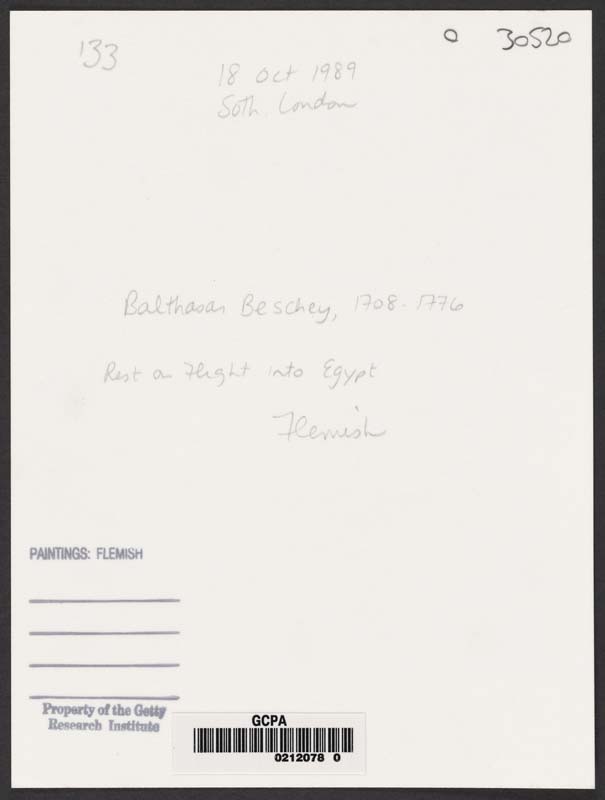 133
0 30520
18 Oct 1989
Soth. London
Balthasar Beschey, 1708-1776
Rest on Flight into Egypt
Flemish
PAINTINGS: FLEMISH
Property of the Getty
Research Institute
GCPA
0212078 0